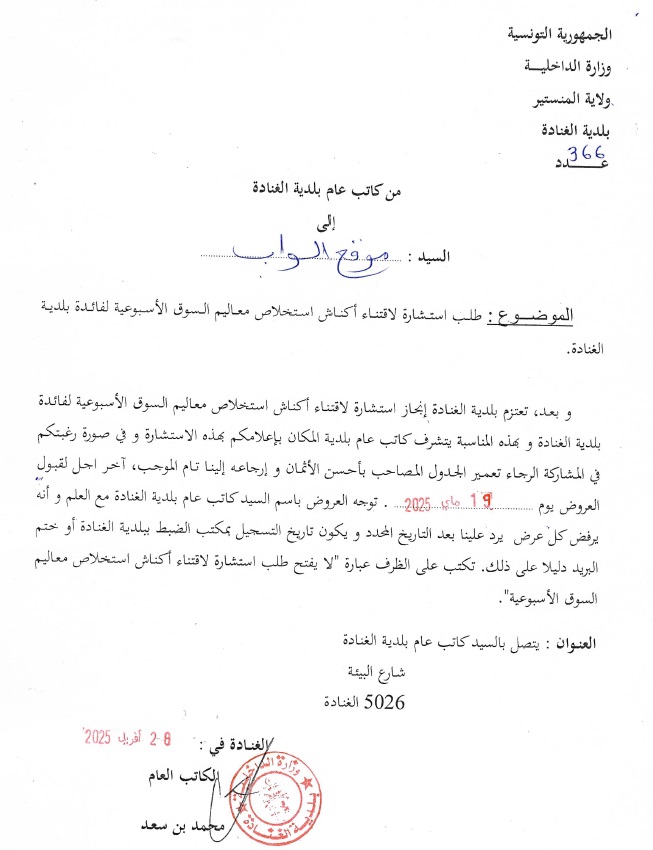 الجمهورية التونسية
وزارة الداخليـــة
ولاية المنستير
بلدية الغنادة
366
عـــــدد
من كاتب عام بلدية الغنادة
إلى
السيد : موقع الواب
الموضـــوع : طلب استشارة لاقتناء أكناش استخلاص معاليم السوق الأسبوعية لفائدة بلدية
الغنادة.
و بعد، تعتزم بلدية الغنادة إنجاز استشارة لاقتناء أكناش استخلاص معاليم السوق الأسبوعية لفائدة
بلدية الغنادة و بهذه المناسبة يتشرف كاتب عام بلدية المكان بإعلامكم بهذه الاستشارة و في صورة رغبتكم
في المشاركة الرجاء تعمير الجدول المصاحب بأحسن الأثمان و إرجاعه إلينا تام الموجب، آخر اجل لقبول
العروض يوم 19 ماي 2025 . توجه العروض باسم السيد كاتب عام بلدية الغنادة مع العلم و أنه
يرفض كل عرض يرد علينا بعد التاريخ المحدد و يكون تاريخ التسجيل بمكتب الضبط ببلدية الغنادة أو ختم
البريد دليلا على ذلك. تكتب على الظرف عبارة "لا يفتح طلب استشارة لاقتناء أكناش استخلاص معاليم
السوق الأسبوعية".
العنوان : يتصل بالسيد كاتب عام بلدية الغنادة
شارع البيئة
5026 الغنادة
الغنادة في : 28 أفريل 2025
الكاتب العام
محمد بن سعد
وزارة الداخلية
بلدية الغنادة